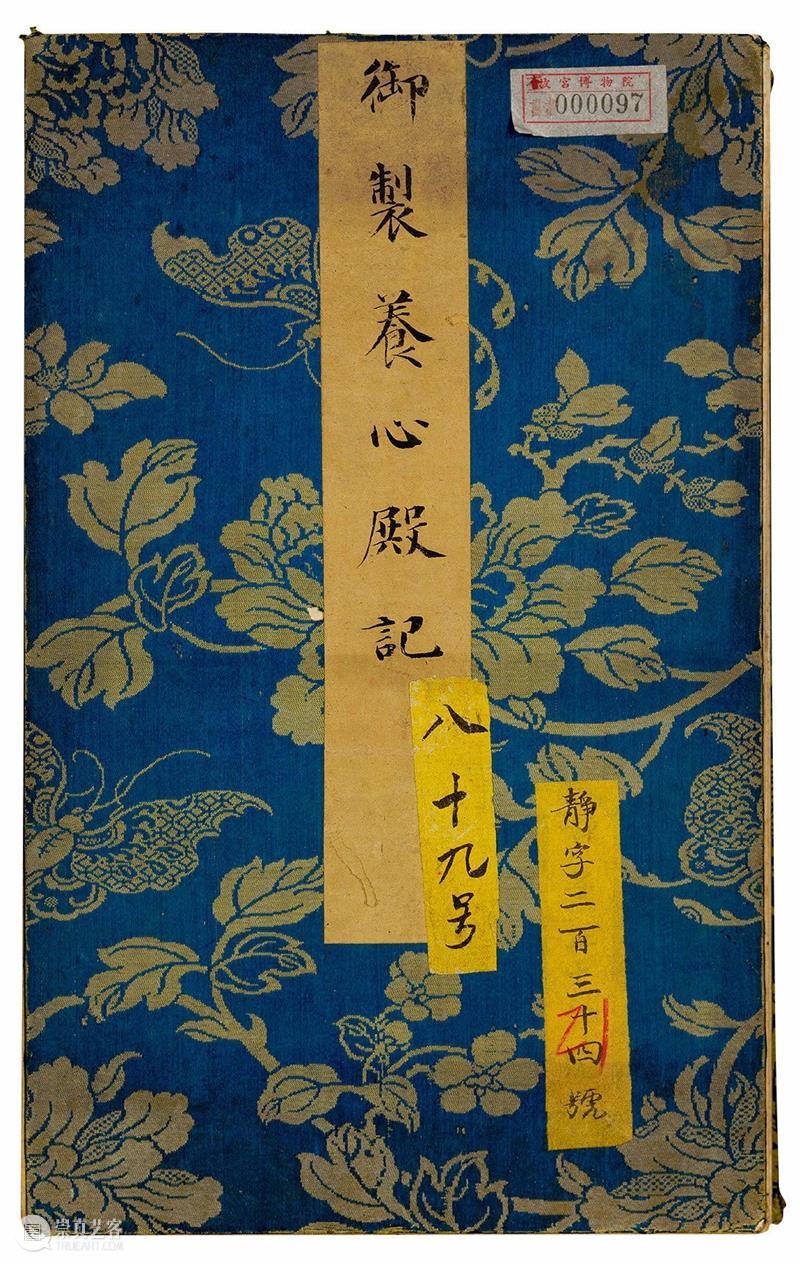 御製養心殿記
故宮博物院
000097
八十九号
靜字二百三十四號
崇真艺客
TRUEART.COM